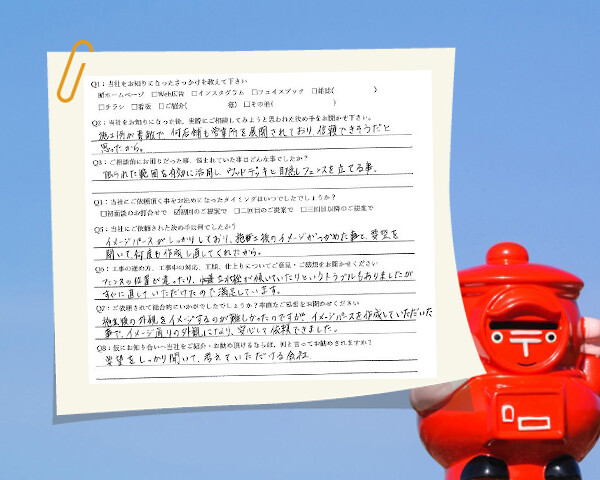 Q1：当社をお知りになったきっかけを教えて下さい
☑ホームページ □Web広告 □インスタグラム □フェイスブック □雑誌( )
□チラシ □看板 □ご紹介( 様) □その他( )
Q2：当社をお知りになった後、実際にご相談してみようと思われた決め手をお聞かせ下さい。
施工例が素敵で、何店舗も営業所を展開されており、信頼できそうだと
思ったから。
Q3：ご相談前にお困りだった事、悩まれていた事はどんな事でしたか？
限られた範囲を有効に活用し、ウッドデッキと目隠しフェンスを立てる事。
Q4：当社にご依頼頂く事をお決めになったタイミングはいつでしたでしょうか？
□初面談のお打合せで ☑初回のご提案で □二回目のご提案で □三回目以降のご提案で
Q5：当社にご依頼された決め手は何でしたか？
イメージパースがしっかりしており、施工後のイメージがつかめた事と、要望を
聞いて何度も作成し直してくれたから。
Q6：工事の進め方、工事中の対応、工期、仕上りについてご意見・ご感想をお聞かせください
フェンスの位置が違ったり、水栓が傾いていたりというトラブルもありましたが
すぐに直していただけたので満足しています。
Q7：ご依頼されて総合的にいかがでしたでしょうか？率直なご感想をお聞かせください
施工後の外観をイメージするのが難しかったのですが、イメージパースを作成していただいた
事で、イメージ通りの外観になり、安心して依頼できました。
Q8：仮にお知り合いへ当社をご紹介・お勧め頂けるならば、何と言ってお勧めされますか？
要望をしっかり聞いて、考えていただける会社